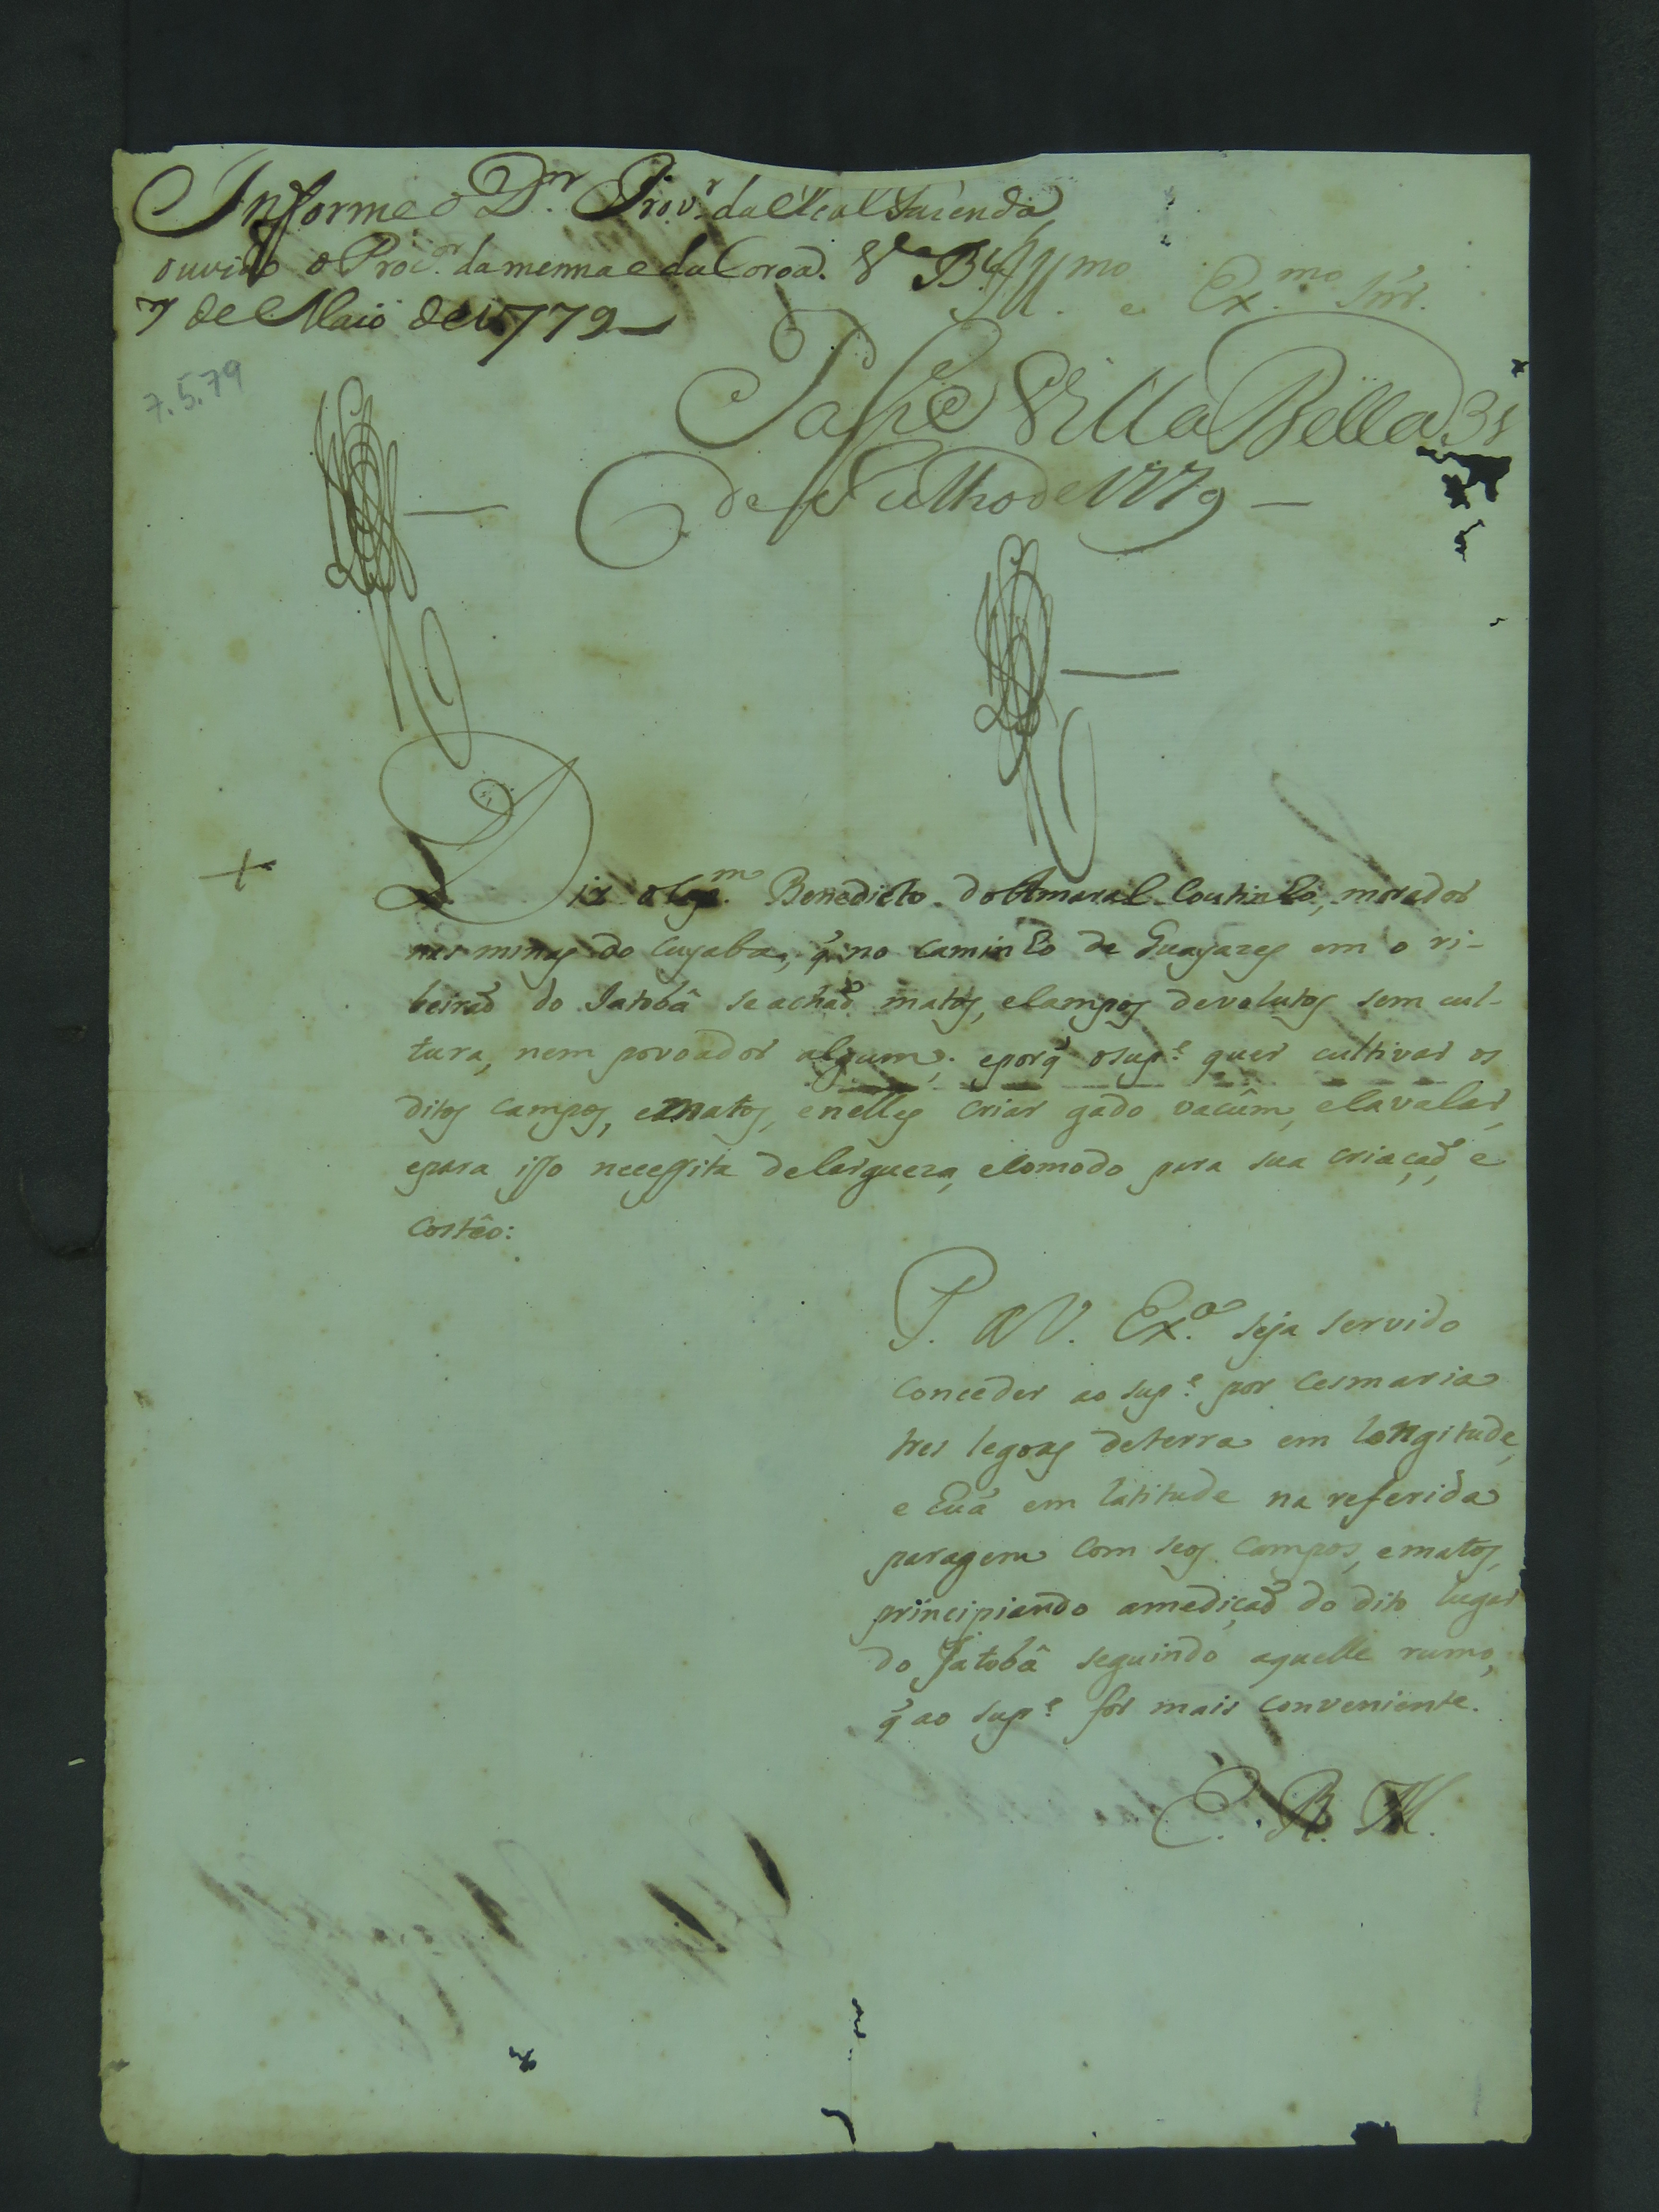 Informe o D.r Prov.r da Real Fazenda
ouvido o Proc.or da mesma e da Coroa. V.a B.a
7 de Maio de 1779
Ill.mo e Ex.mo Snr.
7.5.79
Passe Villa Bella 31
de Julho de 1779
Diz o Benedicto do Amaral Coutinho, morador
nas minas do Cuyaba, q̃ no caminho de Guayazes em o ri-
beiraõ do Jatobâ se achaõ matos, e campos devolutos sem cul-
tura, nem povoador algum; e porq̃ o sup.e quer cultivar os
ditos campos, e matos, e nelles criar gado vacûm, e cavalar,
e para isso necessita de largueza, e comodo para sua criaçaõ, e
costêo:
P. a V. Ex.a seja servido
conceder ao sup.e por cesmaria
tres legoas de terra em longitude,
e huã em latitude na referida
paragem com seos campos, e matos,
principiando a mediçaõ do dito lugar
do Jatobâ seguindo aquelle rumo,
q̃ ao sup.e for mais conveniente.
E. R. M.